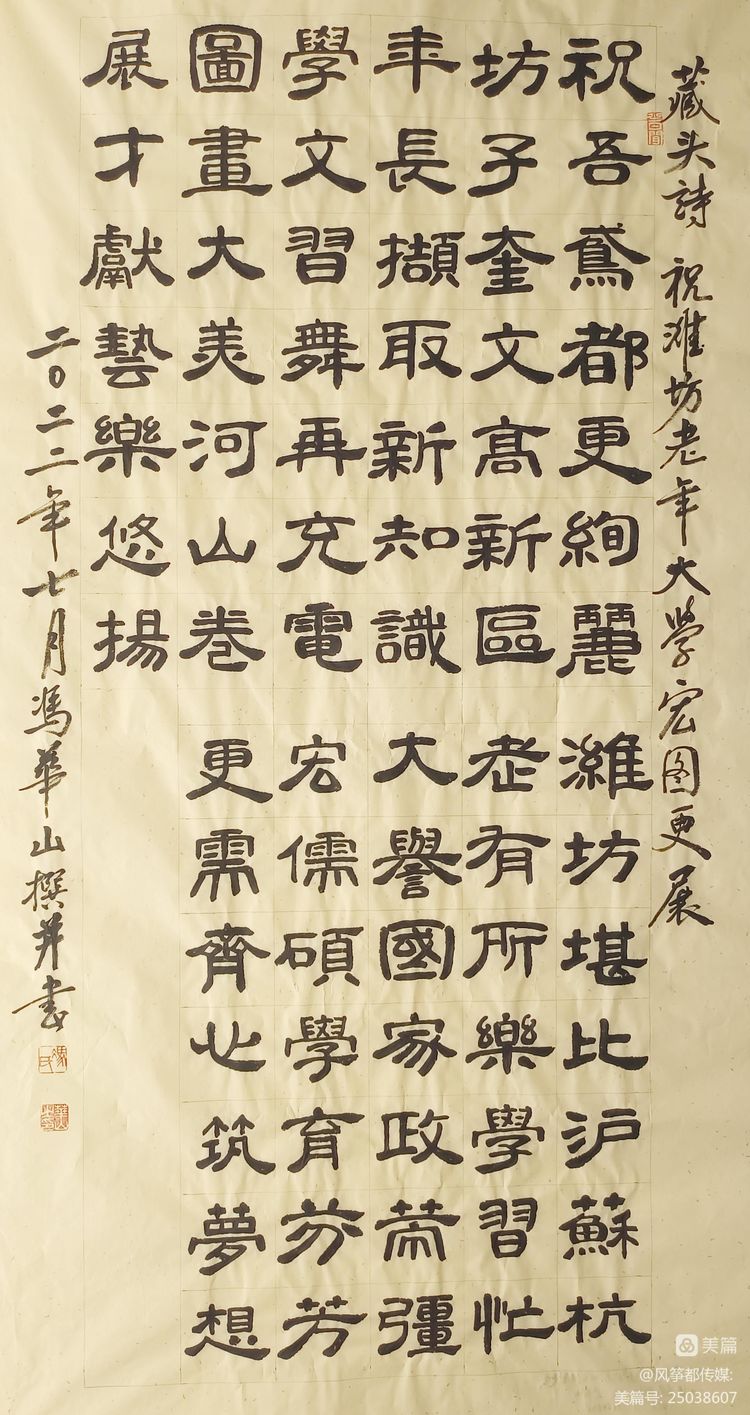 藏头詩 祝潍坊老年大学宏图更展
祝吾鳶都更絢麗 濰坊堪比沪蘇杭
坊子奎文高新區 老有所樂學習忙
年長擷取新知識 大譽國家政彊
學文習舞再充電 宏儒碩學育芬芳
圖畫大美河山卷 更需齊心筑夢想
展才獻藝樂悠揚
二〇二二年七月馮華山撰并书
美篇
@风筝都传媒:
美篇号: 25038607